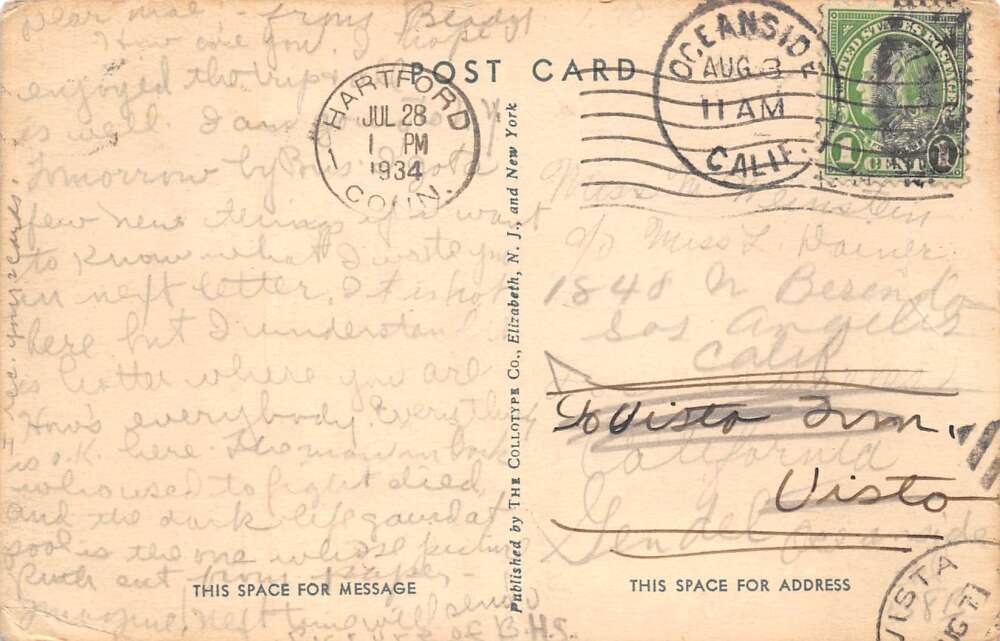 Dear Mae - from Bendy
How are you. I hope you
enjoyed the trip
is well I am
Tomorrow by Bus. I got a
few new things if u want
to know what I wrote you
in next letter. It is hot
here but I understand it
is hotter where you are
How's everybody Everything
is O.K. here. The man in back
who used to fight died
and the dark life gaurd at
pool is the one whose picture
Ruth cut from Paper -
magazine. Next time will send
picture of B.H.S.
cards.
POST CARD
HARTFORD
JUL 28
1 PM
1934
CONN.
OCEANSIDE
AUG 3
11 AM
CALIF.
UNITED STATES POSTAGE
1 CENT 1
Miss M. Weinstein
c/o Miss L. Dainer
1848 N Berendo
Los Angeles
Calif
To Vista From,
California
Vista
Gen del Oceanside
VISTA
Published by THE COLLOTYPE CO., Elizabeth, N. J., and New York
THIS SPACE FOR MESSAGE
THIS SPACE FOR ADDRESS